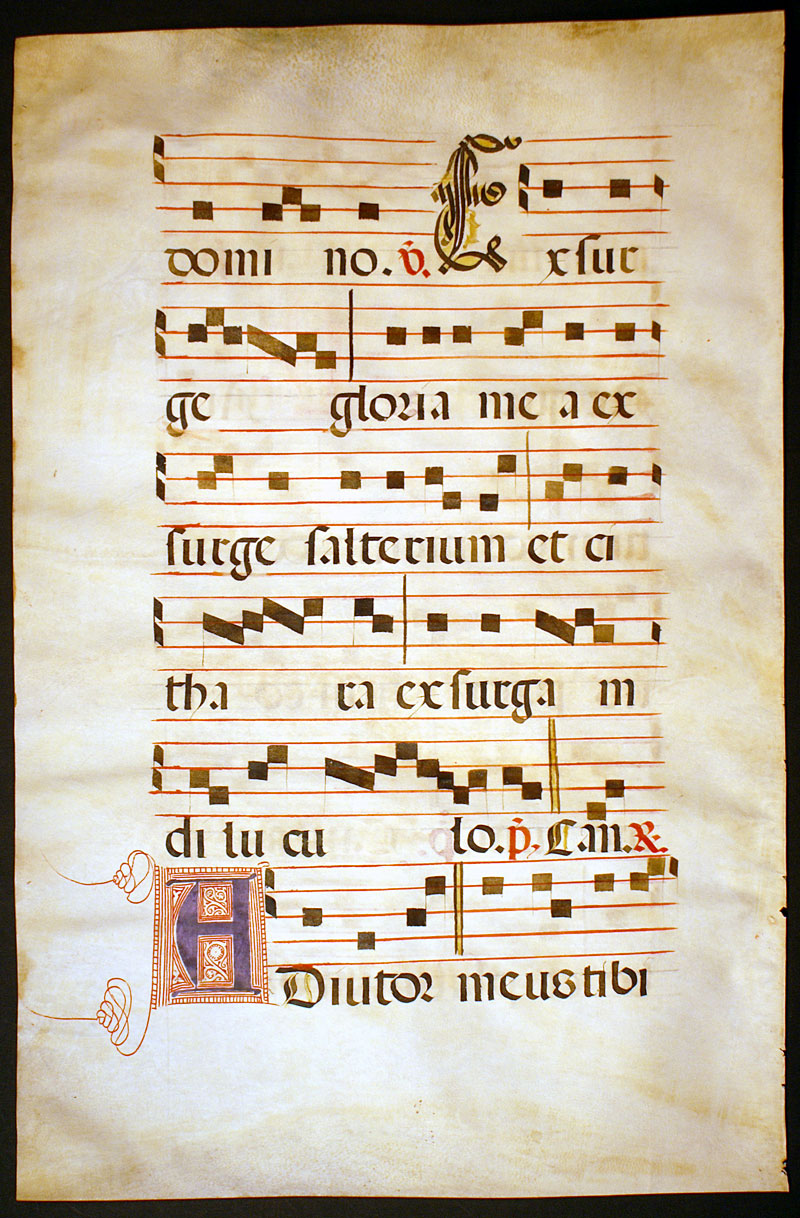 domi no. v. Exsur
ge gloria mea ex
surge salterium et ci
tha ra exsurga m
di lu cu lo. p. Can. R.
ADiutor meus tibi